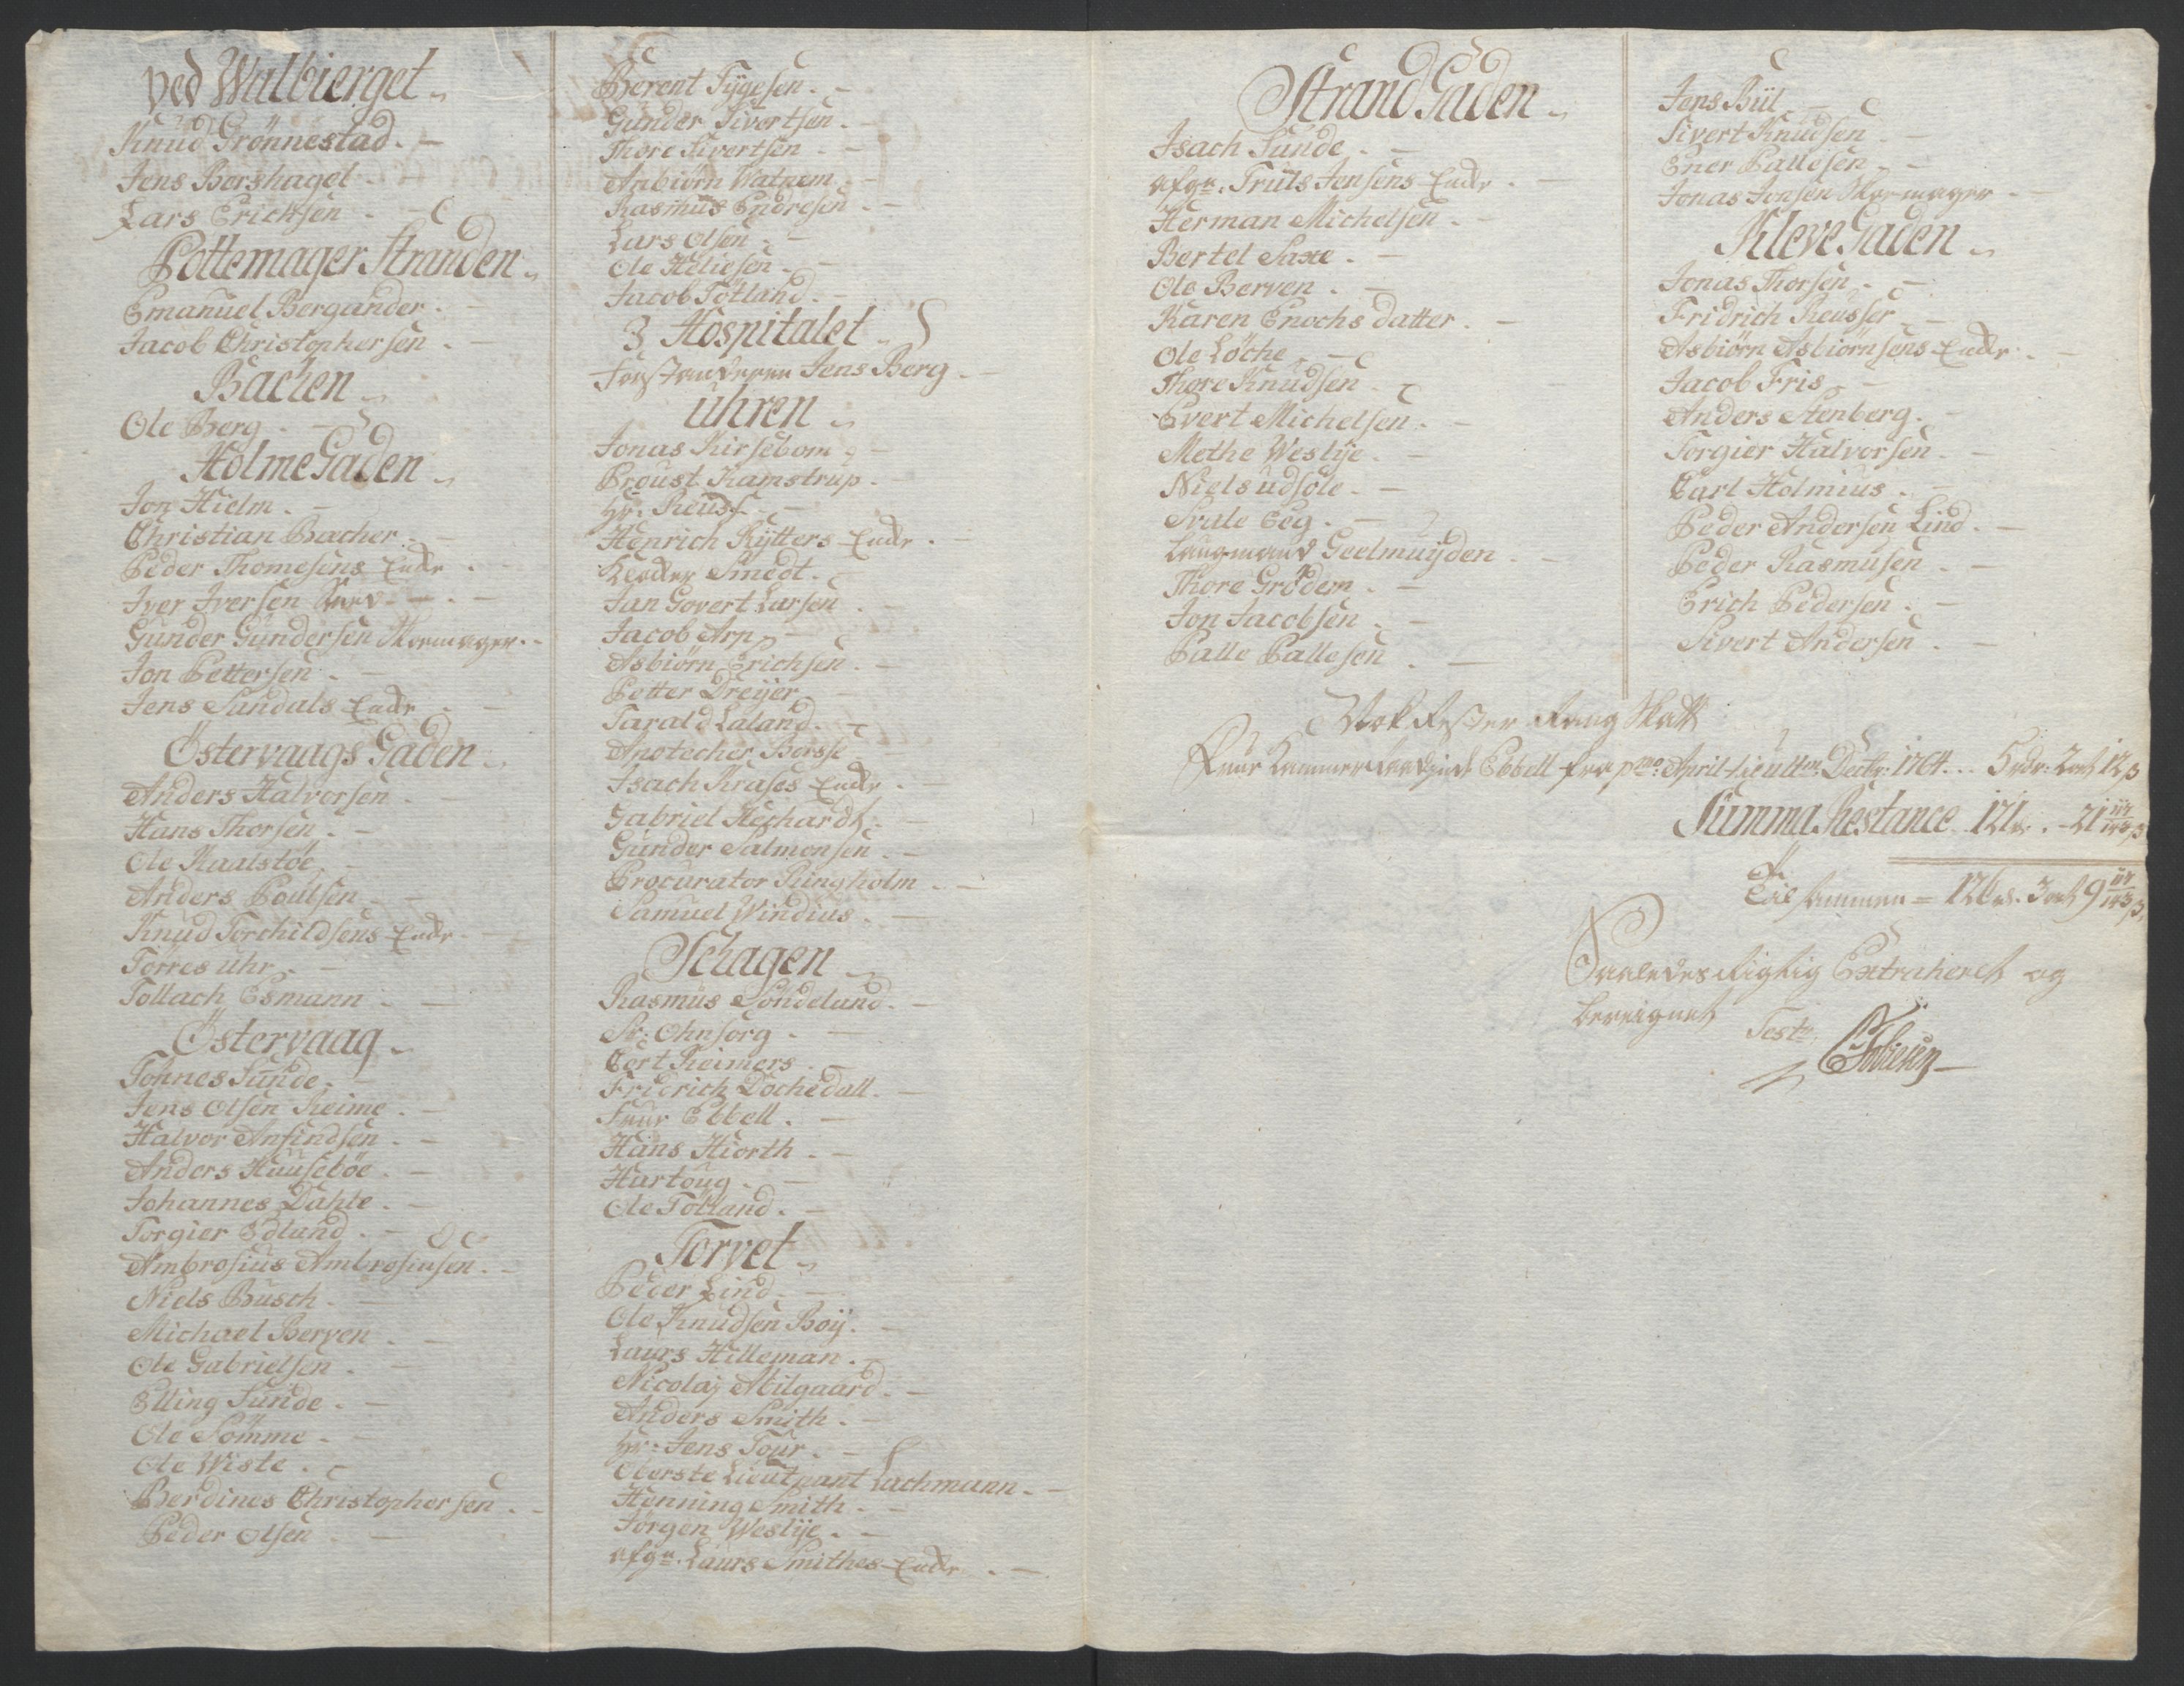 ved Walbierget
Knud Grönnestad. —
Jens Bershagel.
Lars Erichsen. —
Pottemager Stranden
Emanuel Bergander. —
Jacob Christophersen. —
Bachen
Ole Berg. —
Holme Gaden
Jon Hielm. —
Christian Bacher. —
Peder Thomesens Encke. —
Iver Iversen —
Gunder Gundersen Skoemager. —
Jon Pettersen. —
Jens Sundals Encke. —
Östervaags Gaden
Anders Halvorsen. —
Hans Thorsen. —
Ole Kaalstöe. —
Anders Poulsen. —
Knud Torchildsens Encke. —
Törres Uhr. —
Tollach Esmann. —
Östervaag
Tohnes Sunde. —
Jens Olsen Reime. —
Halvor Ansindsen. —
Anders Huuseböe. —
Johannes Dahle. —
Torgier Edland. —
Ambrosius Ambrosiusen. —
Niels Busch. —
Michael Berven. —
Ole Gabrielsen. —
Elling Sunde. —
Ole Sömme. —
Ole Wiste. —
Berdines Christophersen. —
Peder Olsen. —
Berent Tygesen. —
Gunder Sivertsen. —
Thore Sivertsen. —
Anbiörn Watnem. —
Rasmus Endresen. —
Lars Olsen. —
Ole Heliesen. —
Jacob Totland. —
3 Hospitalet
Forstanderen Jens Berg. —
Uhren
Jonas Kirsebom. —
Proust Kamstrup. —
Hr: Reuss. —
Henrich Rytters Encke. —
Smedt. —
Jan Govert Larsen. —
Jacob Arp. —
Asbiörn Erichsen. —
Petter Dreyer. —
Tarald Laland. —
Apotecher Borsse
Isach Krases Encke. —
Gabriel Hechardt. —
Gunder Salmonsen. —
Procurator Ringholm. —
Samuel Windius. —
Schagen
Rasmus Söndeland. —
Sr: Ohnsorg. —
Cort Reimers. —
Fridrich Dochedall. —
Ebbell. —
Hans Hiorth. —
Hartoug. —
Ole Totland. —
Torvet
Peder Lind. —
Ole Knudsen Boy. —
Laurs Hilleman. —
Nicolaj Milgaard. —
Anders Smith. —
Hr: Jens Tour. —
Oberste Lieutnant Lachmann. —
Henning Smith. —
Jörgen Weslye. —
afgn. Laurs Smithes Encke. —
Strand Gaden
Isach Sunde. —
afgn. Truls Jensens Encke. —
Herman Michelsen. —
Bertel Saxe. —
Ole Berven. —
Karen Enochs datter. —
Ole Löche. —
Thore Knudsen. —
Evert Michelsen. —
Methe Weslye. —
Niels Udsole. —
Svale Eeg. —
Laugmand Geelmuyden. —
Thore Grödem. —
Jon Jacobsen. —
Palle Pallesen. —
Jens Bül. —
Sivert Knudsen. —
Ener Pallesen. —
Jonas Jonsen Skoemager. —
Kleve Gaden
Jonas Thorsen. —
Fridrich Reusser. —
Asbiörn Asbiörnsens Encke. —
Jacob Fris. —
Anders Stenberg. —
Torgier Halvorsen. —
Carl Holmius. —
Peder Andersen Lind. —
Peder Rasmusen. —
Erich Pedersen. —
Sivert Andersen. —
Nok Rester Rang Skatt
Ebbell fra pmo: April til ultm: Decbr: 1764... 5 rdr: 2 ort 12 β
Summa Restance 121 r. - 21
Til sammen = 126 r. 3 ort 9
Saaledes Rigtig Extraheret og
beregnet
Test
Tobiesen